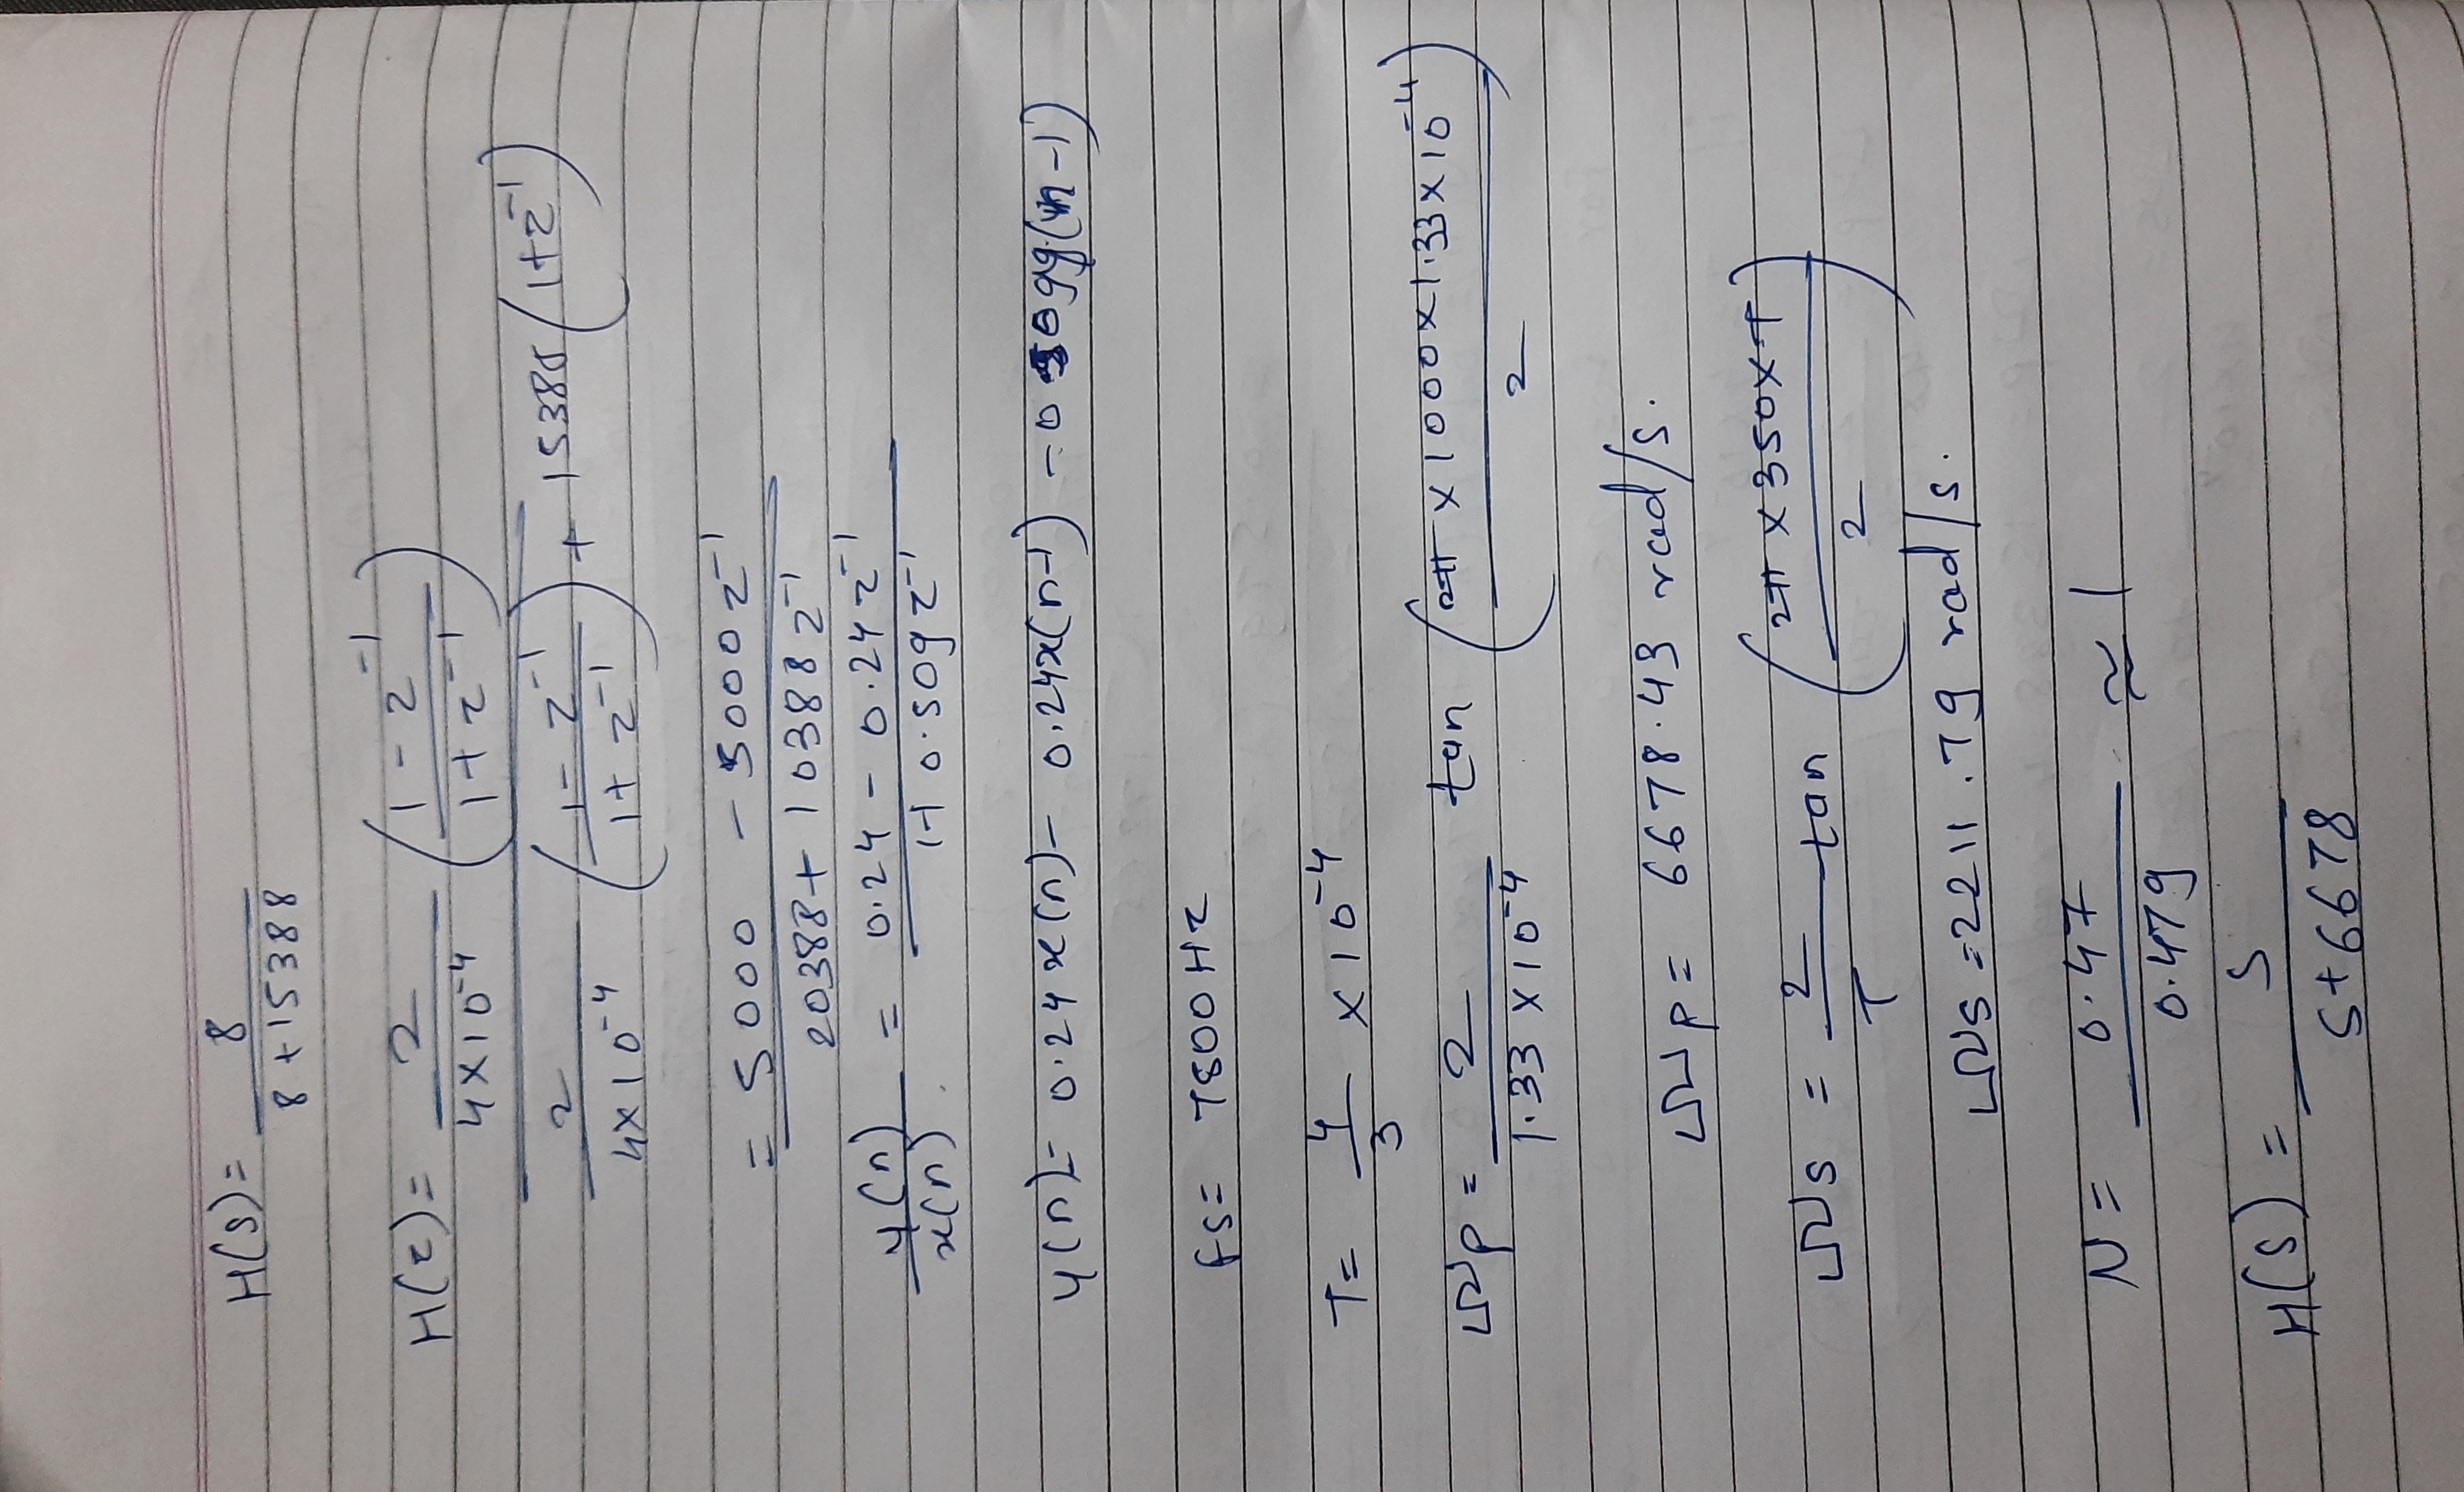 H(S)= 8 / 8+15388
H(z)= 2 / 4×10⁻⁴ (1-z⁻¹ / 1+z⁻¹)
2 / 4×10⁻⁴ (1-z⁻¹ / 1+z⁻¹) + 15388 (1+z⁻¹)
= 5000 - 5000z⁻¹
20388 + 10388z⁻¹
y(n) / x(n) = 0.24 - 0.24z⁻¹ / 1+0.509z⁻¹
y(n)= 0.24x(n) - 0.24x(n-1) - 0.509y(n-1)
fs= 7500Hz
T= 4/3 × 10⁻⁴
Ωp = 2 / 1.33×10⁻⁴ tan (2π×1000×1.33×10⁻⁴ / 2)
Ωp = 6678.43 rad/s.
Ωs = 2/T tan (2π×350×T / 2)
Ωs = 2211.79 rad/s.
N = 0.47 / 0.479 ≈ 1
H(S) = S / S+6678